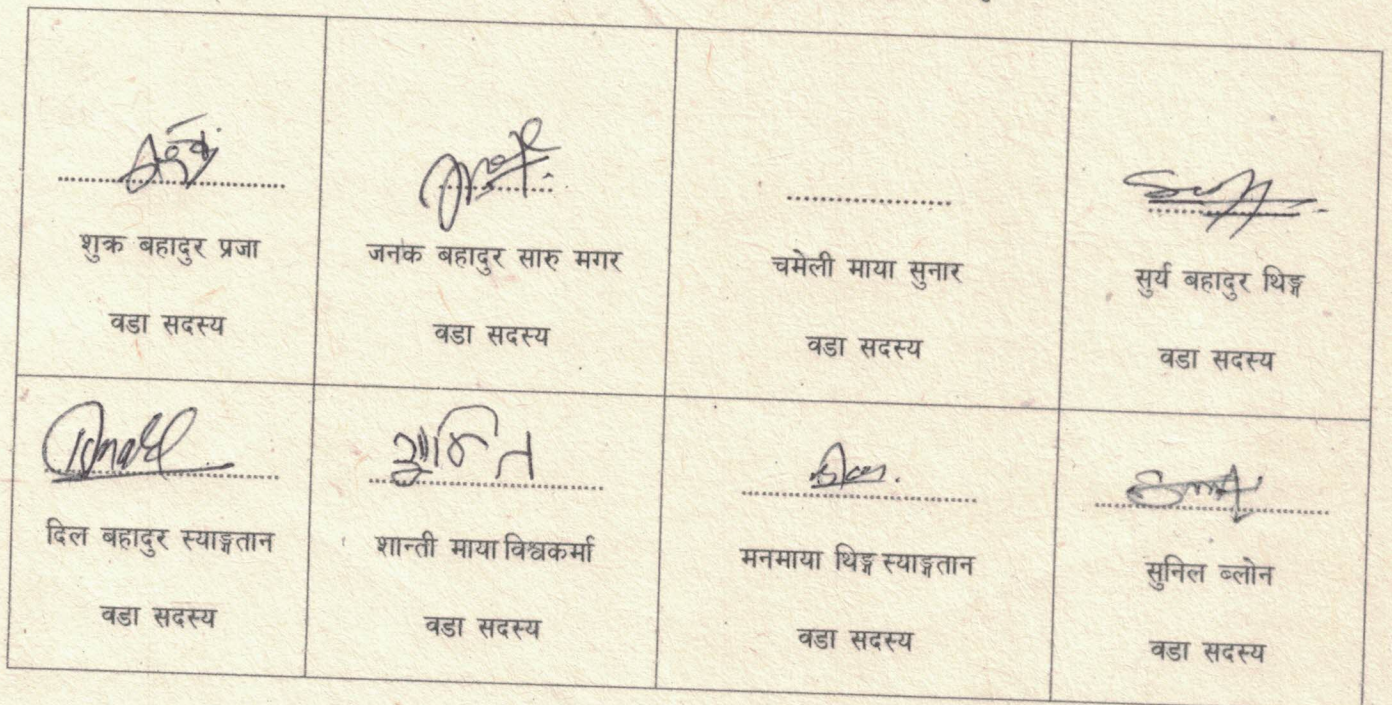 शुक्र बहादुर प्रजा
वडा सदस्य
जनक बहादुर सारु मगर
वडा सदस्य
चमेली माया सुनार
वडा सदस्य
सुर्य बहादुर थिङ्ग
वडा सदस्य
दिल बहादुर स्याङ्गतान
वडा सदस्य
शान्ती माया विश्वकर्मा
वडा सदस्य
मनमाया थिङ्ग स्याङ्गतान
वडा सदस्य
सुनिल ब्लोन
वडा सदस्य